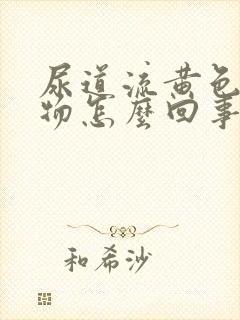 尿道流黄色
物怎麽回事
和希沙